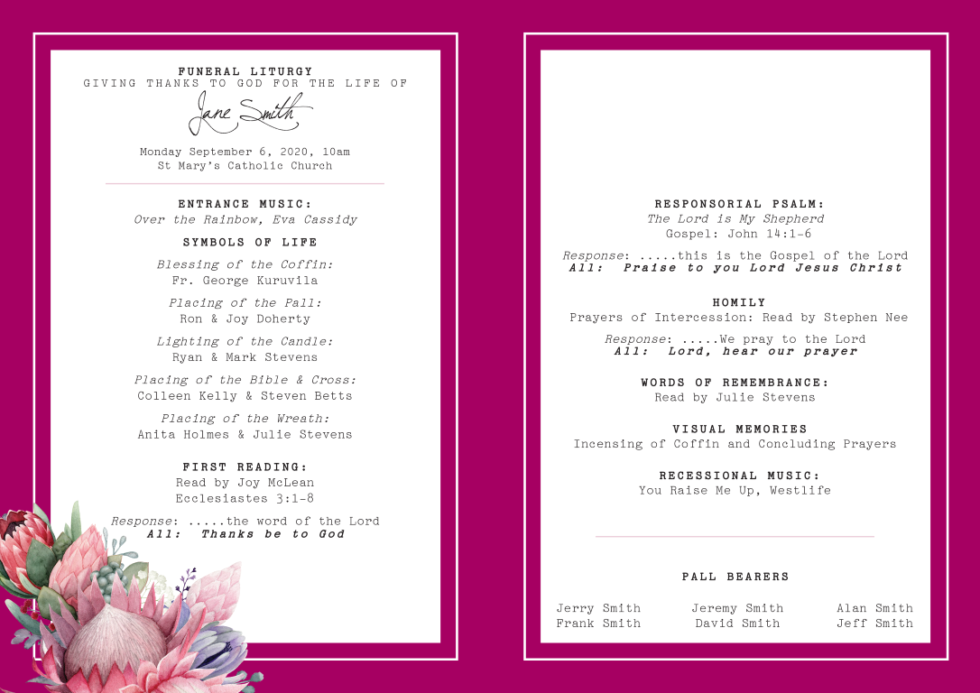 FUNERAL LITURGY
GIVING THANKS TO GOD FOR THE LIFE OF
Jane Smith
Monday September 6, 2020, 10am
St Mary's Catholic Church
ENTRANCE MUSIC:
Over the Rainbow, Eva Cassidy
SYMBOLS OF LIFE
Blessing of the Coffin:
Fr. George Kuruvila
Placing of the Pall:
Ron & Joy Doherty
Lighting of the Candle:
Ryan & Mark Stevens
Placing of the Bible & Cross:
Colleen Kelly & Steven Betts
Placing of the Wreath:
Anita Holmes & Julie Stevens
FIRST READING:
Read by Joy McLean
Ecclesiastes 3:1-8
Response: .....the word of the Lord
All: Thanks be to God
RESPONSORIAL PSALM:
The Lord is My Shepherd
Gospel: John 14:1-6
Response: .....this is the Gospel of the Lord
All: Praise to you Lord Jesus Christ
HOMILY
Prayers of Intercession: Read by Stephen Nee
Response: .....We pray to the Lord
All: Lord, hear our prayer
WORDS OF REMEMBRANCE:
Read by Julie Stevens
VISUAL MEMORIES
Incensing of Coffin and Concluding Prayers
RECESSIONAL MUSIC:
You Raise Me Up, Westlife
PALL BEARERS
Jerry Smith Jeremy Smith Alan Smith
Frank Smith David Smith Jeff Smith